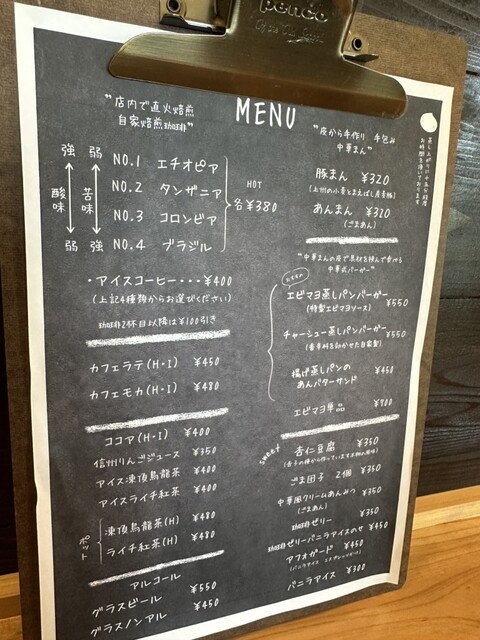 penco
MENU
"店内で直火焙煎
自家焙煎珈琲"
強 弱
酸味 苦味
弱 強
NO.1 エチオピア
NO.2 タンザニア
NO.3 コロンビア
NO.4 ブラジル
HOT
各¥380
・アイスコーヒー・・・¥400
(上記4種類からお選びください)
珈琲2杯目以降は¥100引き
カフェラテ(H・I) ¥450
カフェモカ(H・I) ¥480
ココア(H・I) ¥400
信州りんごジュース ¥350
アイス凍頂烏龍茶 ¥400
アイスライチ紅茶 ¥400
ポット
凍頂烏龍茶(H) ¥480
ライチ紅茶(H) ¥480
アルコール
グラスビール ¥550
グラスノンアル ¥450
"皮から手作り 手包み
中華まん"
豚まん ¥320
(上州の小麦とえばし産青豚)
あんまん ¥320
(ごまあん)
蒸し上がりに十五分程度
お時間を頂いております
"中華まんの皮で具材を挟んで食べる
中華式バーガー"
おすすめ
エビマヨ蒸しパンバーガー ¥550
(特製エビマヨソース)
チャーシュー蒸しパンバーガー ¥550
(香辛料を効かせた自家製)
揚げ蒸しパンの
あんバターサンド ¥450
エビマヨ単品 ¥700
sweet
杏仁豆腐 ¥350
ごま団子 2個 ¥350
中華風クリームあんみつ ¥350
(ごまあん)
珈琲ゼリー ¥350
珈琲ゼリーバニラアイスのせ ¥450
アフォガード ¥450
バニラアイス ¥300